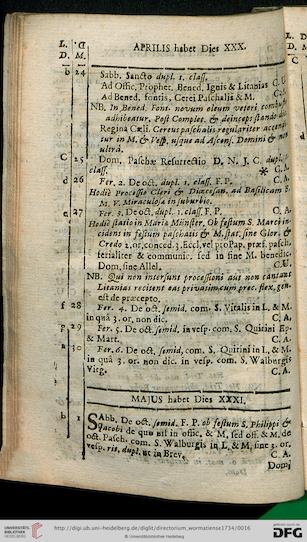 L. D.
D. M.
APRILIS habet Dies XXX.
b 24 Sabb. Sancto dupl. 1. class.
Ad Offic. Prophet. Bened. Ignis & Litanias C. V.
Ad Bened. fontis, Cerei Paschalis & M. C. A.
NB. In Bened. Font. novum oleum veteri combusto
adhibeatur, Post Complet. & deinceps stando dicitur
Regina Cæli. Cereus paschalis regulariter accenditur
tur in M. & Vesp. usque ad Ascens. Domini & non
ultrà.
C 25 Dom. Paschæ Resurrectio D. N. J. C. dupl. 1.
class. * C. A.
d 26 Fer. 2. De oct. dupl. 1. class. F. P. C. A.
Hodiè Processio Cleri & Diœcesan. ad Basilicam B.
M. V. Miraculosæ in suburbio.
e 27 Fer. 3. De oct. dupl. 1. class. F. P. C. A.
Hodiè statio in Maria Münster, Ob festum S. Marci in-
cidens in festum paschatis & M. stat. sine Glor. &
Credo 2. or. conced. 3. Eccl. vel pro Pap. præf. pasch.
ferialiter & communic. sed in fine M. benedic.
Dom. sine Allel. C. V.
NB. Qui non intersunt processioni aut non cantant
Litanias recitent eas privatim cum prec. flex. gen.
est de præcepto.
f 28 Fer. 4. De oct. semid. com. S. Vitalis in L. & M.
in quâ 3. or. non dic. C. A.
p 29 Fer. 5. De oct. semid. in vesp. com. S. Quirini Ep.
& Mart. C. A.
a 30 Fer. 6. De oct. semid. com. S. Quirini in L. & M.
in quâ 3. or. non dic. in vesp. com. S. Walburgis
Virg. C. A.
MAJUS habet Dies XXXI.
b 1 SAbb. De oct. semid. F. P. ob festum S. Philippi &
Jacobi de quo nil in offic. & M. sed off. & M. de
oct. Pasch. com. S. Walburgis in L. & M. sine 3. or.
vesp. ris. dupl. ut in Brev. C. A.
Domi
UNIVERSITÄTS-
BIBLIOTHEK
HEIDELBERG
http://digi.ub.uni-heidelberg.de/diglit/directorium_wormatiense1734/0016
© Universitätsbibliothek Heidelberg